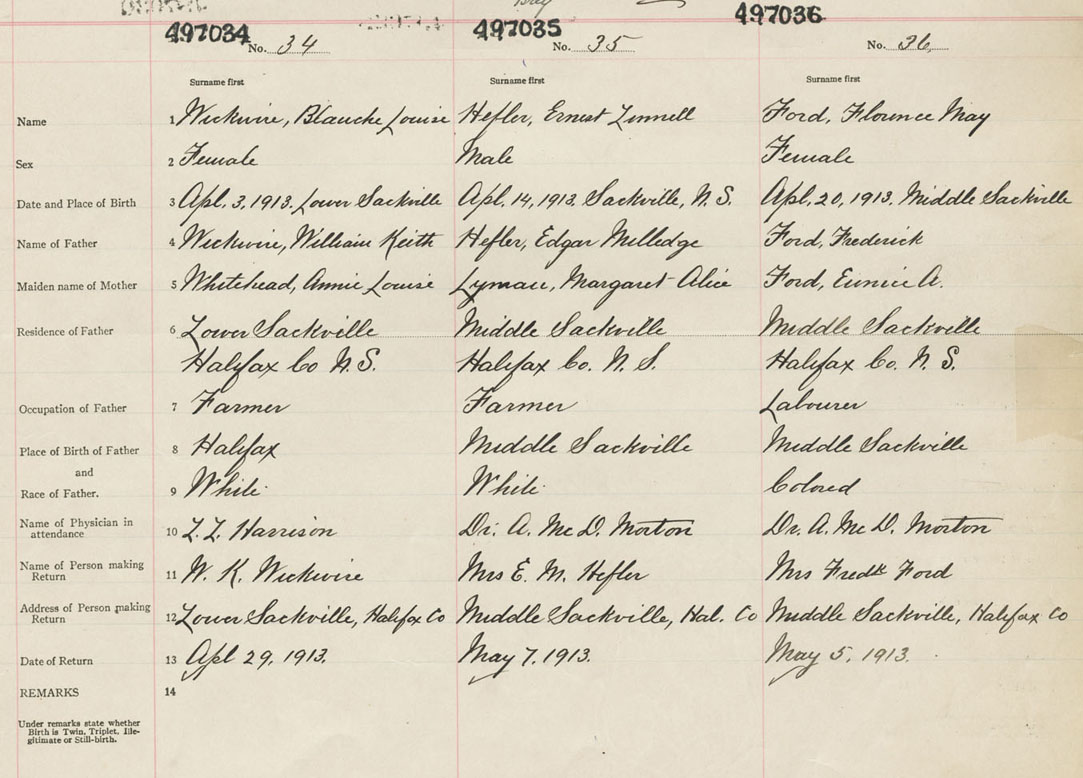 Bry
497034 No. 34 497035 No. 35 497036 No. 36
Surname first Surname first Surname first
Name 1 Wickwire, Blanche Louise Hefler, Ernest Linnell Ford, Florence May
Sex 2 Female Male Female
Date and Place of Birth 3 Apl. 3, 1913. Lower Sackville Apl. 14, 1913. Sackville, N. S. Apl. 20, 1913. Middle Sackville
Name of Father 4 Wickwire, William Keith Hefler, Edgar Milledge Ford, Frederick
Maiden name of Mother 5 Whitehead, Annie Louise Lyman, Margaret Alice Ford, Eunice A.
Residence of Father 6 Lower Sackville Middle Sackville Middle Sackville
Halifax Co N. S. Halifax Co. N. S. Halifax Co. N. S.
Occupation of Father 7 Farmer Farmer Labourer
Place of Birth of Father 8 Halifax Middle Sackville Middle Sackville
and
Race of Father. 9 White White Colored
Name of Physician in
attendance 10 Harrison Dr. A. Mc D. Morton Dr. A. Mc D. Morton
Name of Person making
Return 11 W. K. Wickwire Mrs E. M. Hefler Mrs Fredk Ford
Address of Person making
Return 12 Lower Sackville, Halifax Co Middle Sackville, Hal. Co Middle Sackville, Halifax Co
Date of Return 13 Apl 29, 1913. May 7, 1913. May 5, 1913.
REMARKS 14
Under remarks state whether
Birth is Twin, Triplet, Ille-
gitimate or Still-birth.